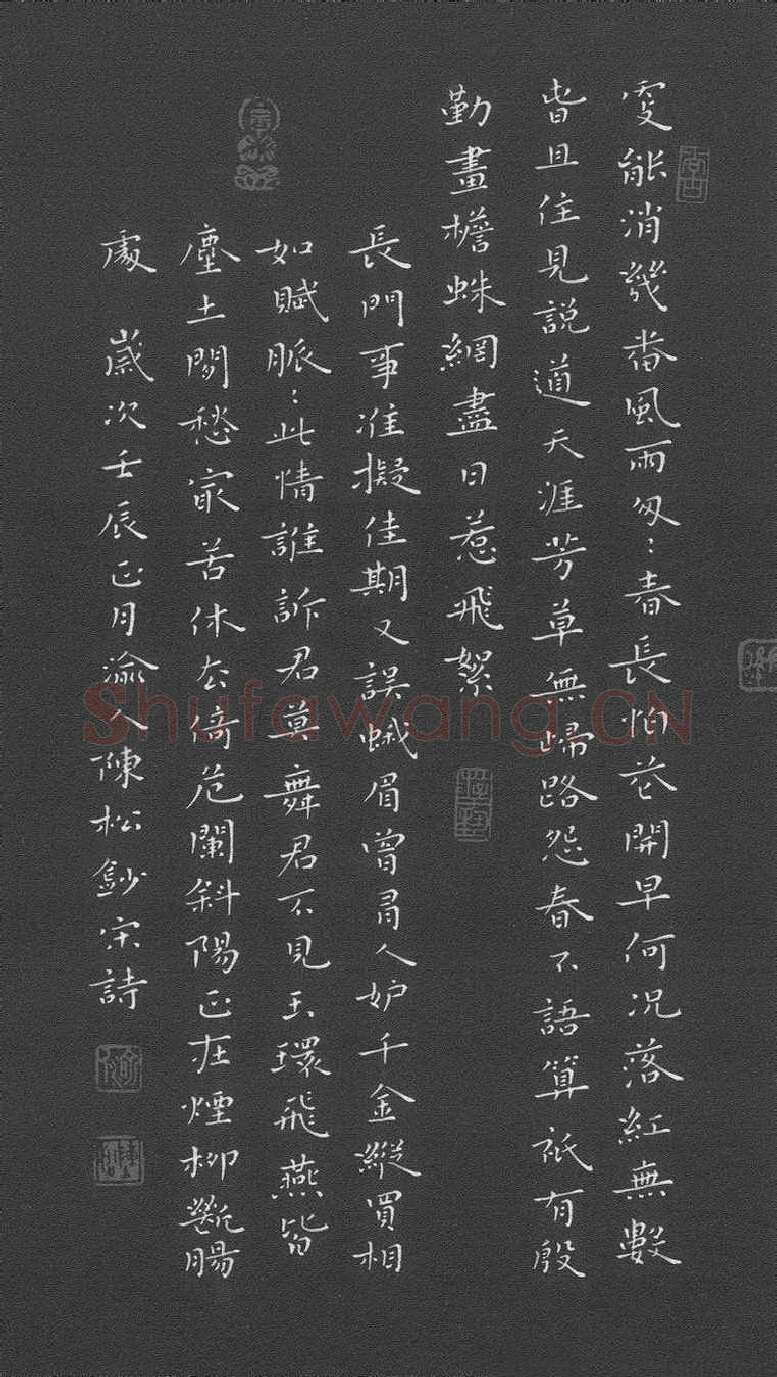 更能消幾番風雨匆:春長怕花開早何況落紅無數
旾且住見説道天涯芳草無歸路怨春不語算衹有殷
勤畫檐蛛網盡日惹飛絮
長門事准擬佳期又誤蛾眉曾有人妒千金縱買相
如賦脈:此情誰訴君莫舞君不見玉環飛燕皆
塵土閒愁冣苦休去倚危闌斜陽正在煙柳斷腸
處 歲次壬辰正月渝人陳松鈔宋詩
Shufawang.CN